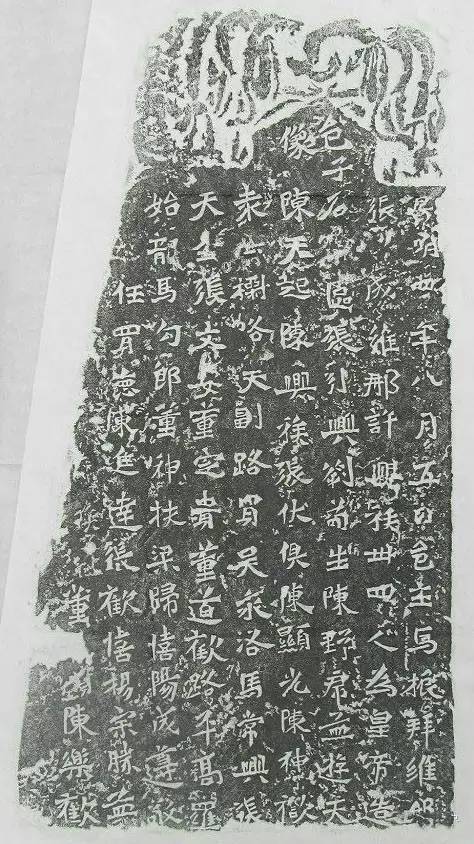 景明四年八月五日邑主馬振拜維那
張成維那許興族卅四人為皇帝造
邑子石區張引興劉苟生陳野君孟遊天
像陳天起陳興徐張伏俱陳顯光陳神歡
路天副路買吳永洛馬常興張
天生張文安董宅貴董道歡路平高羅
始龍馬勾郎董神扶梁歸憘陽成遵敬
任買德陳進達張歡憘楊宗勝孟
董陳樂歡